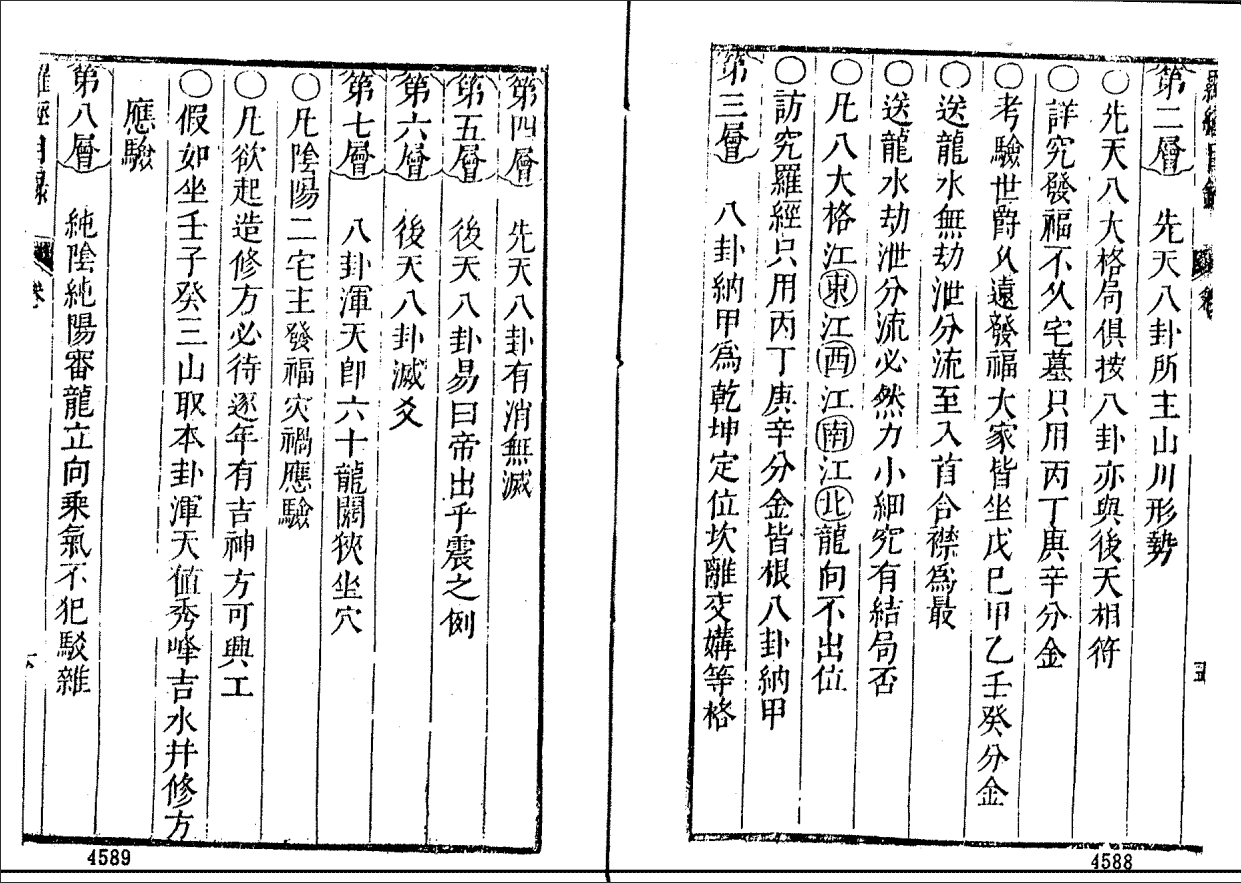 第二層　先天八卦所主山川形勢
〇先天八大格局俱按八卦亦與後天相符
〇詳究發福不久宅墓只用丙丁庚辛分金
〇考驗世爵久遠發福大家皆坐戊巳甲乙壬癸分金
〇送龍水無劫泄分流至入首合襟為最
〇送龍水劫泄分流必然力小細究有結局否
〇凡八大格江東江西江南江北龍向不出位
〇訪究羅經只用丙丁庚辛分金皆根八卦納甲
第三層　八卦納甲為乾坤定位坎離交媾等格
五
4588
第四層　先天八卦有消無滅
第五層　後天八卦易曰帝出乎震之例
第六層　後天八卦滅爻
第七層　八卦渾天卽六十龍闊狹坐穴
〇凡陰陽二宅主發福灾禍應驗
〇凡欲起造修方必待逐年有吉神方可興工
〇假如坐壬子癸三山取本卦渾天值秀峰吉水井修方
應驗
第八層　純陰純陽審龍立向乘氣不犯駁雜
4589